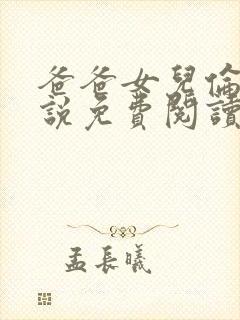 爸爸女兒倫
說免費閱讀
孟長曦